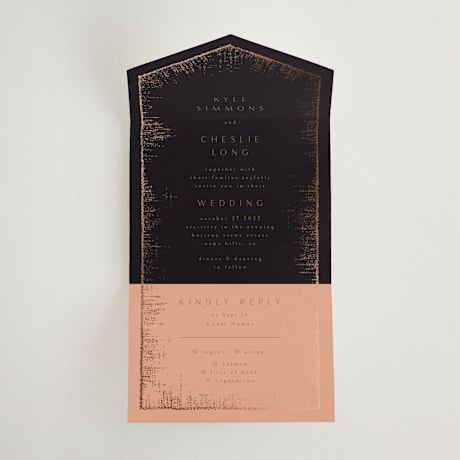 KYLE
SIMMONS
and
CHESLIE
LONG
together with
their families joyfully
invite you to their
WEDDING
october 27 2022
six-thirty in the evening
buttson views estate
napa hills, ca
dinner & dancing
to follow
KINDLY REPLY
by Sept 26
Guest Names
regret accept
salmon
filet of beef
vegetarian